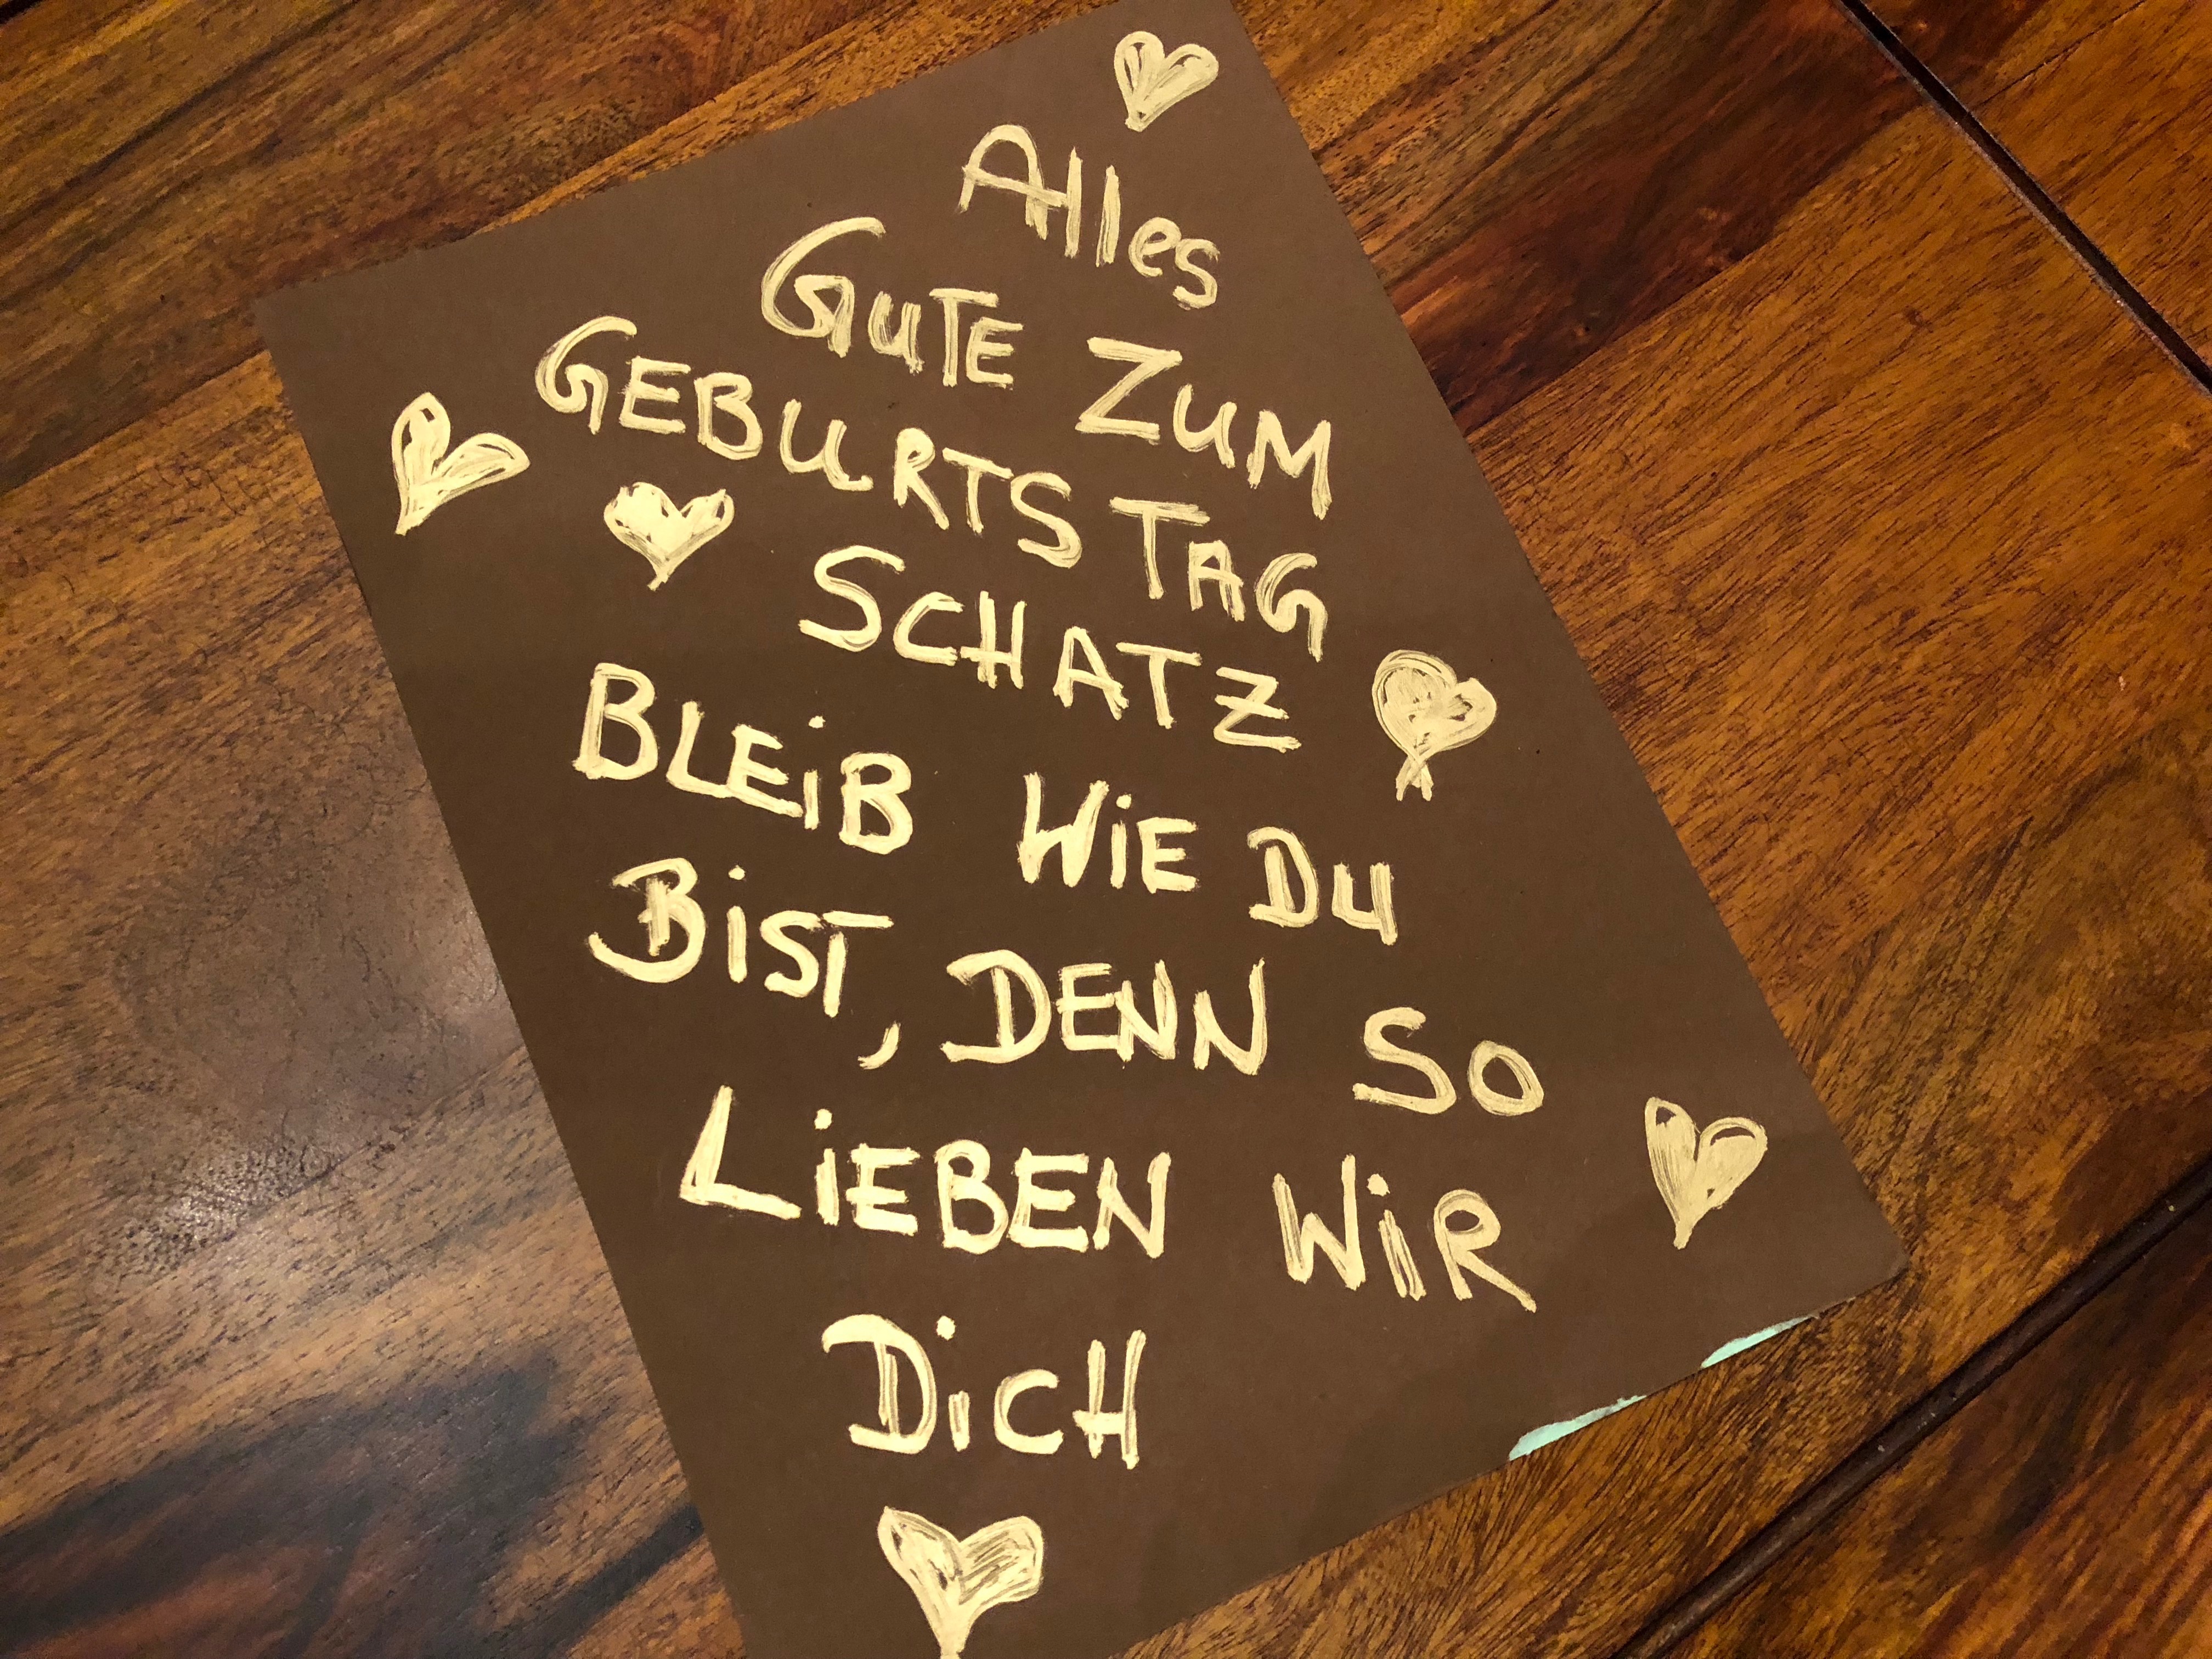 Alles
GuTE ZuM
GEBuRTSTAG
SCHATZ
BLEiB WiE Du
BiST, DENN SO
LiEBEN WiR
DiCH